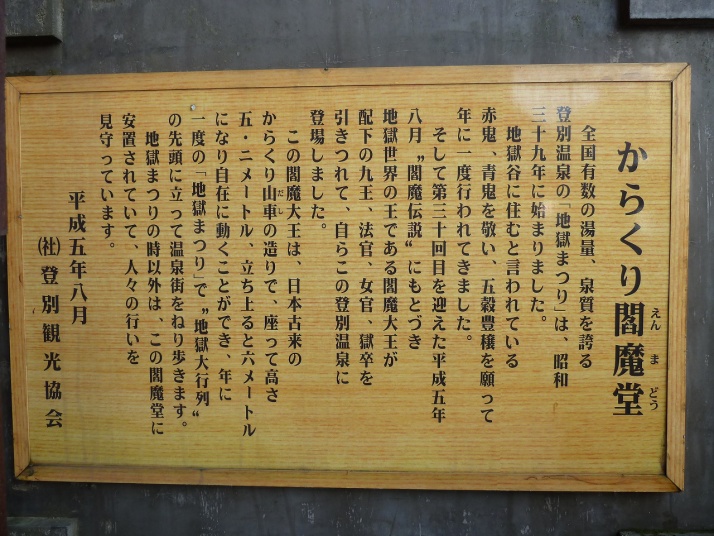 からくり閻魔堂
えんまどう
全国有数の湯量、泉質を誇る
登別温泉の「地獄まつり」は、昭和
三十九年に始まりました。
地獄谷に住むと言われている
赤鬼、青鬼を敬い、五穀豊穣を願って
年に一度行われてきました。
そして第三十回目を迎えた平成五年
八月〝閻魔伝説〟にもとづき
地獄世界の王である閻魔大王が
配下の九王、法官、女官、獄卒を
引きつれて、自らこの登別温泉に
登場しました。
この閻魔大王は、日本古来の
からくり山車の造りで、座って高さ
だし
五・二メートル、立ち上ると六メートル
になり自在に動くことができ、年に
一度の「地獄まつり」で〝地獄大行列〟
の先頭に立って温泉街をねり歩きます。
地獄まつりの時以外は、この閻魔堂に
安置されていて、人々の行いを
見守っています。
平成五年八月
㈳登別観光協会